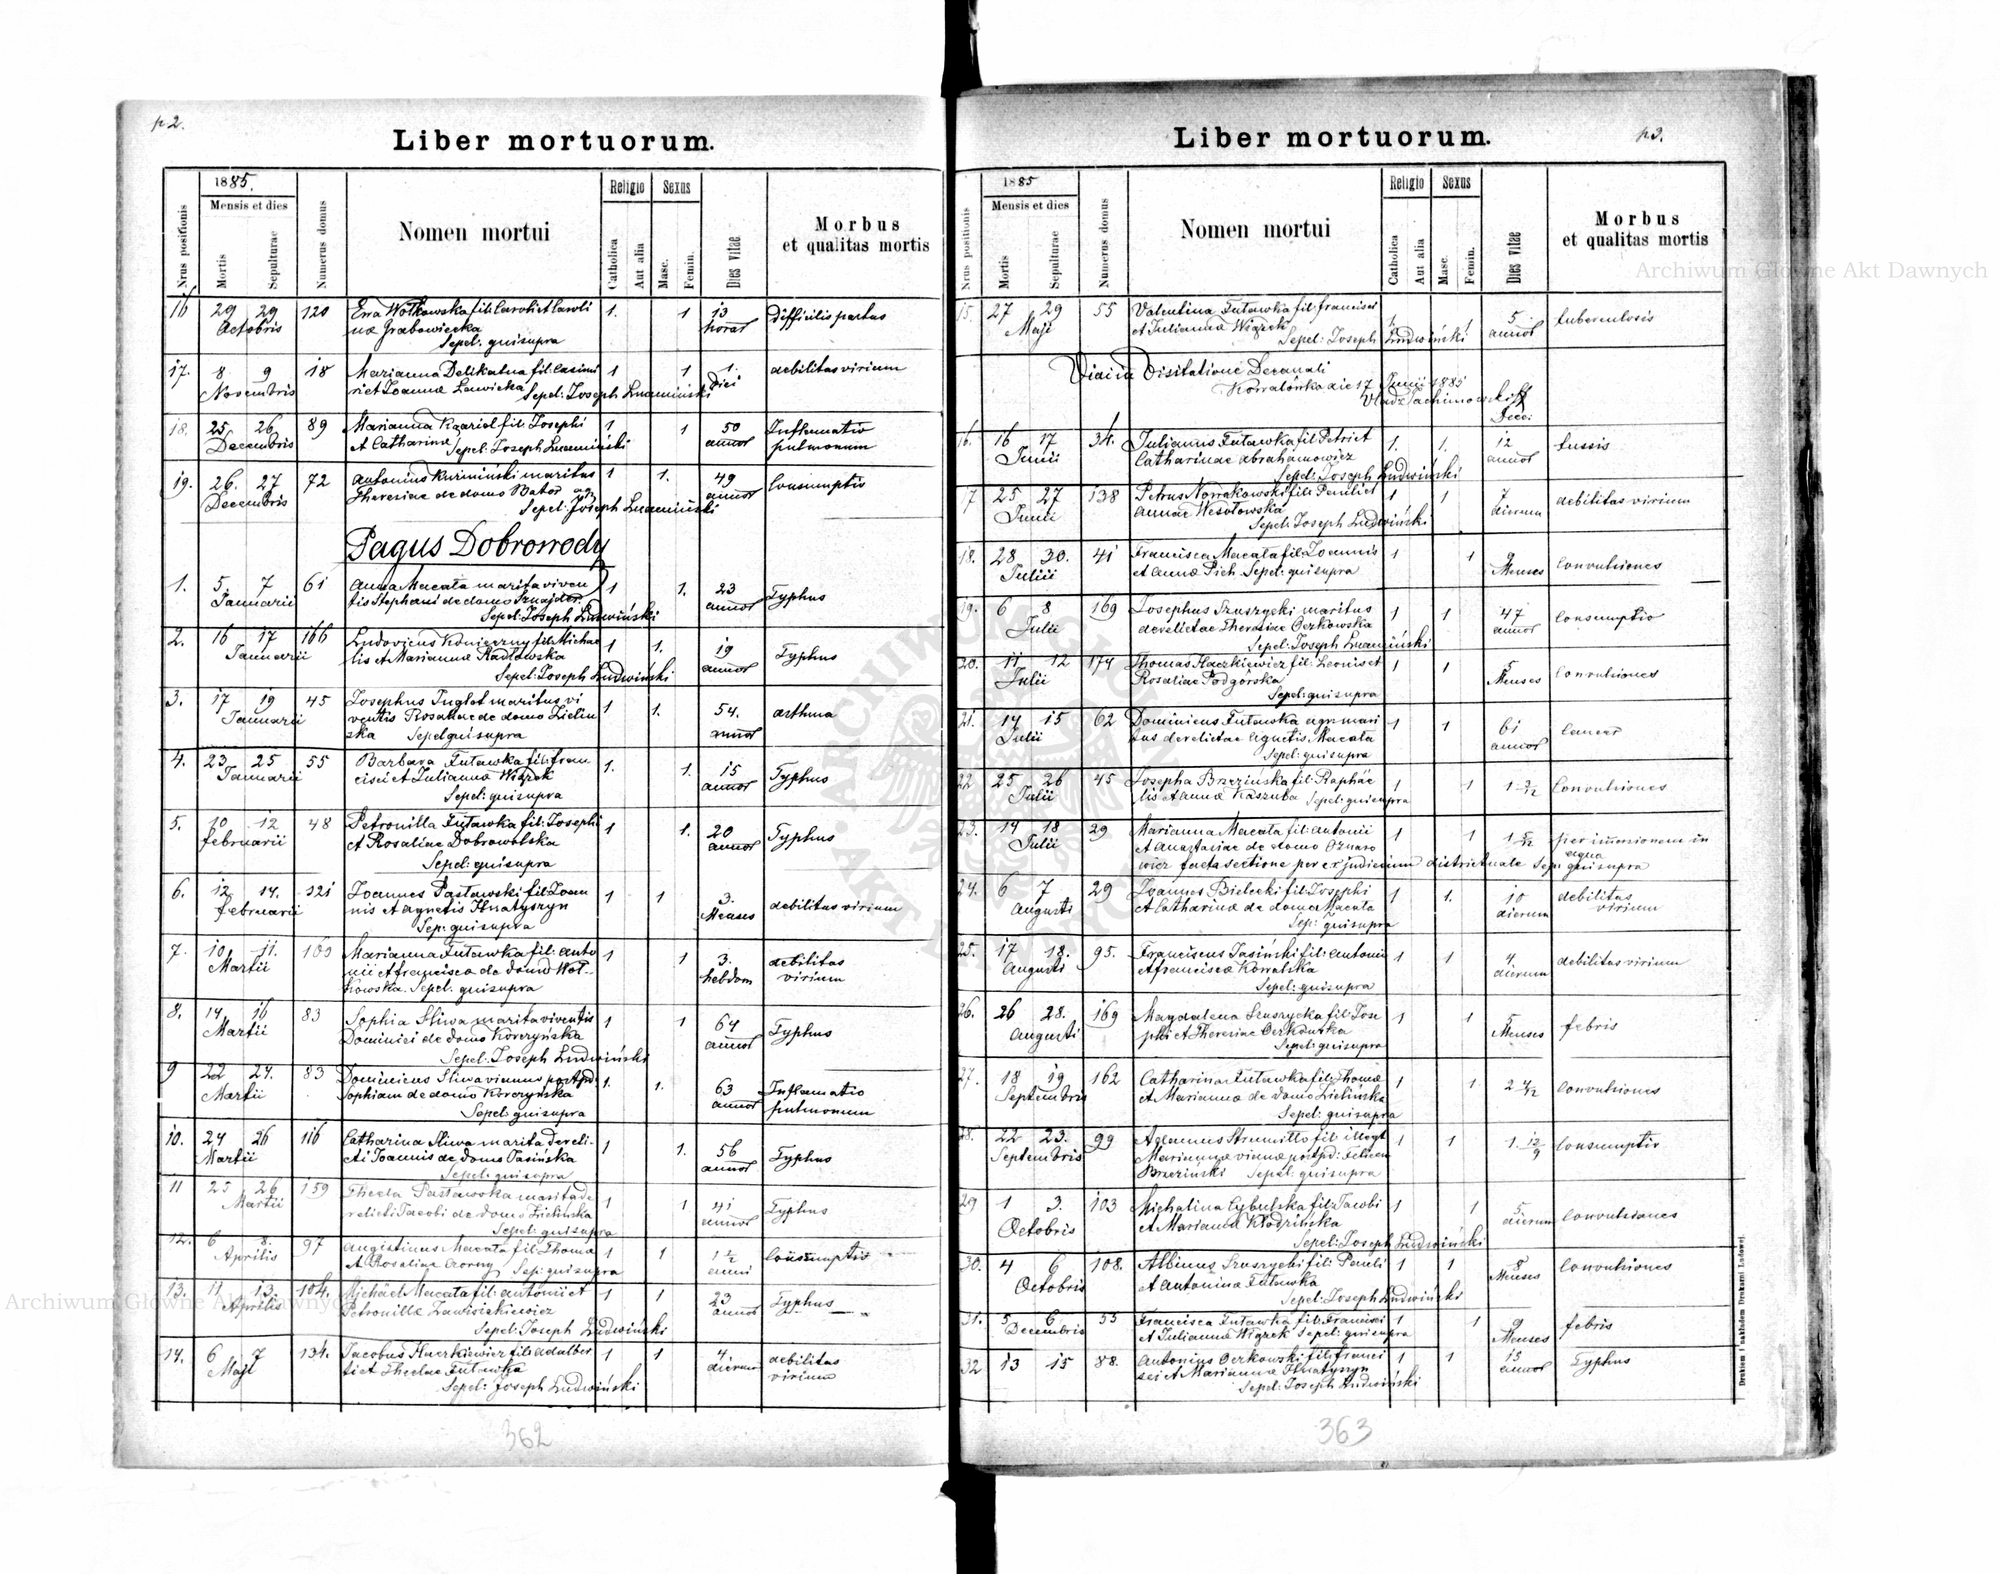 p 2.
Liber mortuorum.
Nrus positionis
1885.
Mensis et dies
Mortis
Sepulturae
Numerus domus
Nomen mortui
Religio
Catholica
Aut alia
Sexus
Masc.
Femin.
Dies vitae
Morbus
et qualitas mortis
16 29 29 120 Eva Wołkowska fil: Caroli et Caroli 1. 1 13 difficilis partus
Octobris næ Grabowiecka horar
Sepel: qui supra
17. 8 9 18 Marianna Delikatna fil: Casimi 1 1 1. debilitas virium
Novembris ri et Joannæ Ławicka diei
Sepel: Joseph
18. 25 26 89 Marianna fil: Josephi 1 1 50 Inflamatio
Decembris et Catharinæ Sepel: Joseph annor pulmonum
19. 26. 27 72 Antonius Kurmiński maritus 1 1. 49 Consumptio
Decembris Theresiae de domo Bator annor
Sepel: Joseph
Pagus Dobrowody
1. 5 7 61 Anna Macata marita viven 1 1. 23 Typhus
Januarii tis Stephani de domo Sznajder annor
Sepel: Joseph Ludwiński
2. 16 17 166 Ludovicus Konieczny fil: Michae 1 1. 19 Typhus
Januarii lis et Mariannæ Radłowska annor
Sepel: Joseph Ludwiński
3. 17 19 45 Josephus Juglot maritus vi 1 1. 54. asthma
Januarii ventis Rosaliae de domo Zielin annor
ska Sepel qui supra
4. 23 25 55 Barbara Futawka fil: Fran 1. 1. 15 Typhus
Januarii cisci et Juliannæ Wiązek annor
Sepel: qui supra
5. 10 12 48 Petronilla Futawka fil: Josephi 1 1. 20 Typhus
Februarii et Rosaliae Dobrowolska annor
Sepel: qui supra
6. 12 14. 121 Joannes Pasławski fil: Joan 1 1 3. debilitas virium
Februarii nis et Agnetis Hnatyszyn Menses
Sep: qui supra
7. 10 11. 160 Marianna Futawka fil: Anto 1 1 3. debilitas
Martii nii et Francisca de domo Woł- hebdom virium
kowska. Sepel. qui supra
8. 14 16 83 Sophia Sliwa marita viventis 1 1 64 Typhus
Martii Dominici de domo Korczyńska annor
Sepel: Joseph Ludwiński
9 22 24. 83 Dominicus Sliwa viduus post pd: 1. 1. 63 Inflamatio
Martii Sophiam de domo Korczyńska annor pulmonum
Sepel: qui supra
10. 24 26 116 Catharina Sliwa marita dereli- 1 1. 56 Typhus
Martii cti Joannis de domo Jasińska annor
Sepel: qui supra
11 25 26 159 Thecla Pasławska marita de 1 1 41 Typhus
Martii relicti Jacobi de domo Zielinska annor
Sepel: qui supra
12. 6 8. 97 Augustinus Macata fil: Thoma 1 1 1 ½ Consumptio
Aprilis et Rosaliae Czorny Sep: qui supra anni
13. 11 13. 104. Michael Macata fil: Antonii et 1 1 23 Typhus
Aprilis Petronillæ annor
Sepel: Joseph Ludwiński
14. 6 7 134. Jacobus Haczkiewicz fil: Adalber 1 1 4 debilitas
Maji ti et Theclae Futawka dierum virium
Sepel: Joseph Ludwiński
362
Liber mortuorum.
p 3.
Nrus positionis
1885
Mensis et dies
Mortis
Sepulturae
Numerus domus
Nomen mortui
Religio
Catholica
Aut alia
Sexus
Masc.
Femin.
Dies vitae
Morbus
et qualitas mortis
15. 27 29 55 Valentina Futawka fil: Francisci 1. 1 5. tuberculosis
Maji et Juliannæ Wiązek annor
Sepel: Joseph Ludwiński
Vidi in Visitatione Decanali
Kowalówka die 17 Junii 1885
16. 16 17 34. Julianus Futawka fil: Petri et 1. 1. 12 tussis
Junii Catharinae Abrahamowicz annor
Sepel: Joseph Ludwiński
17 25 27 138 Petrus Nowakowski fil: Pauli et 1 1 7 debilitas virium
Junii Annae Wesołowska dierum
Sepel: Joseph Ludwiński
18. 28 30. 41 Francisca Macata fil: Joannis 1 1 9 Convulsiones
Julii et Annæ Pich. Sepel: qui supra Menses
19. 6 8 169 Josephus Szuszycki maritus 1 1 47 Consumptio
Julii derelictae Theresiae Oczkowska annor
Sepel: Joseph
20. 11 12 174 Thomas Haczkiewicz fil: Leonis et 1 1 5 Convulsiones
Julii Rosaliae Podgórska Menses
Sepel: qui supra
21. 14 15 62 Dominicus Futawka agr: mari 1 1 61 Cancer
Julii tus derelictae Agnetis Macata annor
Sepel: qui supra
22 25 26 45 Josepha Brzezińska fil: Raphäe 1 1 Convulsiones
Julii lis et Annæ Kaszuba Sepel: qui supra
23. 14 18 29 Marianna Macata fil: Antonii 1 1 1 5/12 per imersionem in
Julii et Anastasiae de domo Oznaro aqua
wicz facta sectione per c.r. judicium districtuale Sep: qui supra
24. 6 7 29 Joannes Bielecki fil: Josephi 1 1. 10 debilitas
Augusti et Catharinæ de domo Macata dierum virium
Sep: qui supra
25. 17 18. 95. Franciscus Jasiński fil: Antonii 1 1 4. debilitas virium
Augusti et Francisca Kowalska dierum
Sepel: qui supra
26. 26 28. 169 Magdalena Szuszycka fil: Jose 1 1 5 febris
Augusti phi et Theresiae Oczkowska Menses
Sepel: qui supra
27. 18 19 162 Catharina Futawka fil: Thomæ 1 1 Convulsiones
Septembris et Mariannæ de domo Zielińska
Sepel: qui supra
28. 22 23. 99 Adamus Strumitto fil: illegt 1 1 Consumptio
Septembris Mariannæ viduæ post pd: Felicem
Brzeziński Sepel: qui supra
29 1 3. 103 Michalina Cybulska fil: Jacobi 1 1 5. Convulsiones
Octobris et Mariannæ Kłodzińska dierum
Sepel: Joseph Ludwiński
30. 4 6 108. Albinus Szuszycki fil: Pauli 1 1 8 Convulsiones
Octobris et Antoninæ Futawska Menses
Sepel: Joseph Ludwiński
31. 5 6 55 Francisca Futawka fil: Francisci 1 1 9 febris
Decembris et Juliannæ Wiązek Sepel: qui supra Menses
32 13 15 88. Antonius Oczkowski fil: Franci 1 1 15 Typhus
sci et Mariannæ Hnatyszyn annor
Sepel: Joseph Ludwiński
Drukiem i nakładem Drukarni Ludowej.
363
Archiwum Główne Akt Dawnych
Archiwum Główne Akt Dawnych
ARCHIWUM GŁÓWNE AKT DAWNYCH